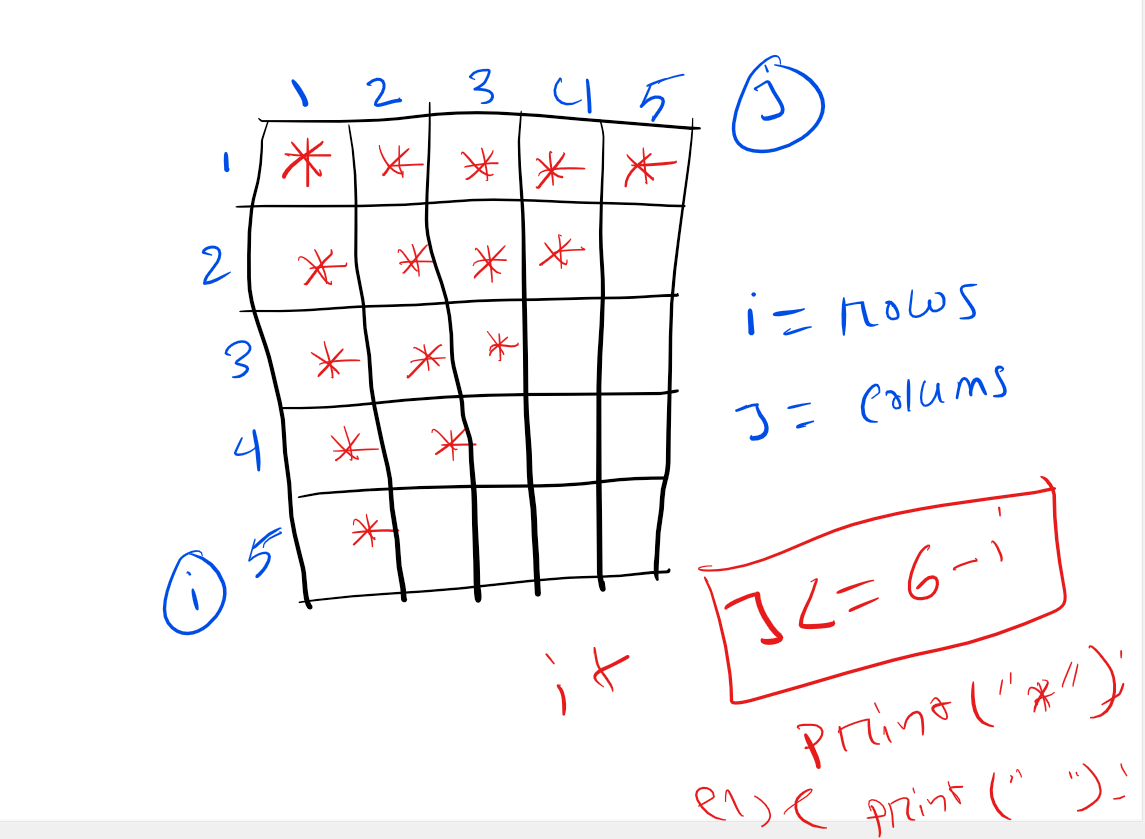 1 2 3 4 5 J
1 * * * * *
2 * * * *
3 * * *
4 * *
i 5 *
i = rows
J = colums
if J <= 6 - i
print("*");
else print(" ");